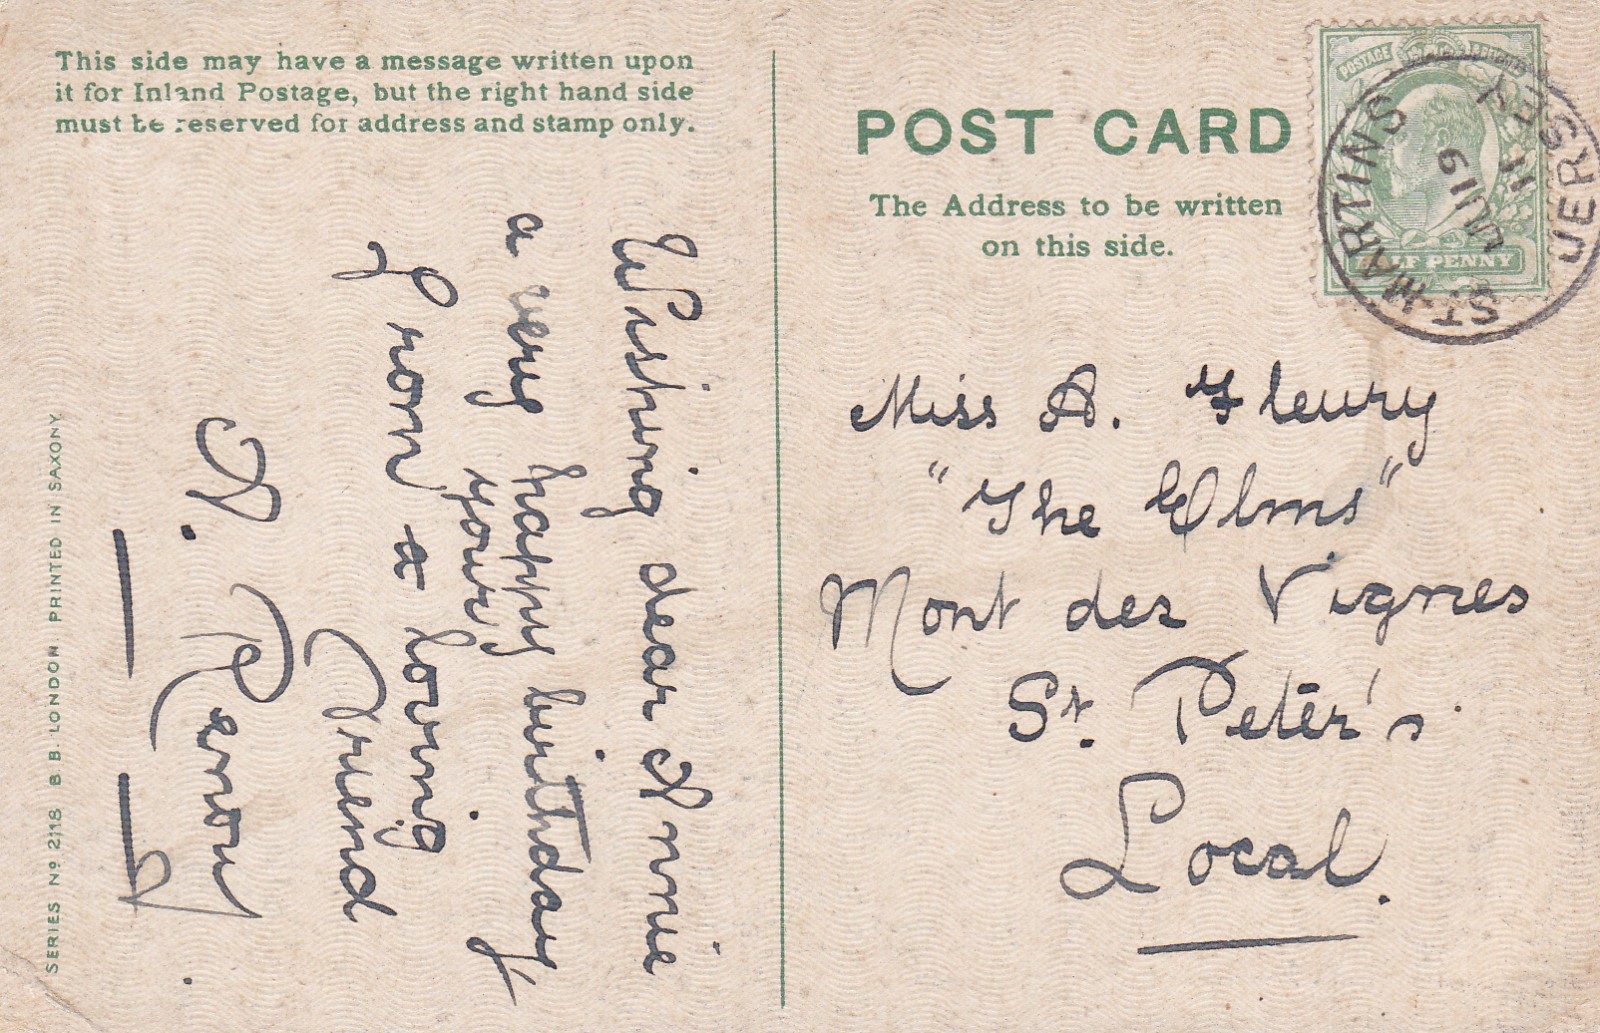 This side may have a message written upon
it for Inland Postage, but the right hand side
must be reserved for address and stamp only.
POST CARD
The Address to be written
on this side.
POSTAGE
HALF PENNY
ST-MARTINS JERSEY
JU 19
11
Wishing dear Annie
a very happy birthday,
your
from a loving
friend
A. Renouf
Miss A. Fleury
"The Elms"
Mont des Vignes
St. Peter's
Local.
SERIES No 2118 B.B. LONDON. PRINTED IN SAXONY